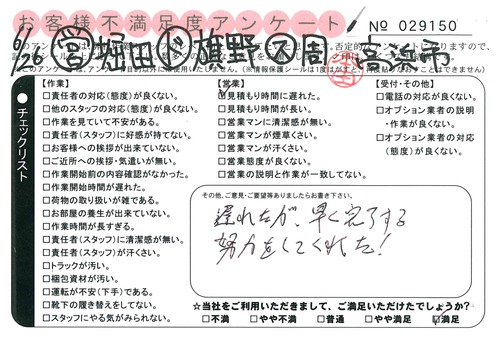 お客様不満足度アンケート
№ 029150
6/26 ㊂堀田 旗野 周 高浜市
チェックリスト
【作業】
□責任者の対応(態度)が良くない。
□他のスタッフの対応(態度)が良くない。
□作業を見ていて不安がある。
□責任者(スタッフ)に好感が持てない。
□お客様への挨拶が出来ていない。
□ご近所への挨拶・気遣いが無い。
□作業開始前の内容確認がなかった。
□作業開始時間が遅れた。
□荷物の取り扱いが雑である。
□お部屋の養生が出来ていない。
□作業時間が長すぎる。
□責任者(スタッフ)に清潔感が無い。
□責任者(スタッフ)が汗くさい。
□トラックが汚い。
□梱包資材が汚い。
□運転が不安(下手)である。
□靴下の履き替えをしてない。
□スタッフにやる気がみられない。
【営業】
☑見積もり時間に遅れた。
□見積もり時間が長い。
□営業マンに清潔感が無い。
□営業マンが煙草くさい。
□営業マンが汗くさい。
□営業態度が良くない。
□営業の説明と作業が一致してない。
【受付・その他】
□電話の対応が良くない。
□オプション業者の説明
・作業が良くない。
□オプション業者の対応
(態度)が良くない。
その他、ご意見・ご要望等ありましたらお書き下さい。
遅れたが、早く完了する
努力をしてくれた!
☆当社をご利用いただきまして、ご満足いただけたでしょうか?
□不満 □やや不満 □普通 □やや満足 ☑満足